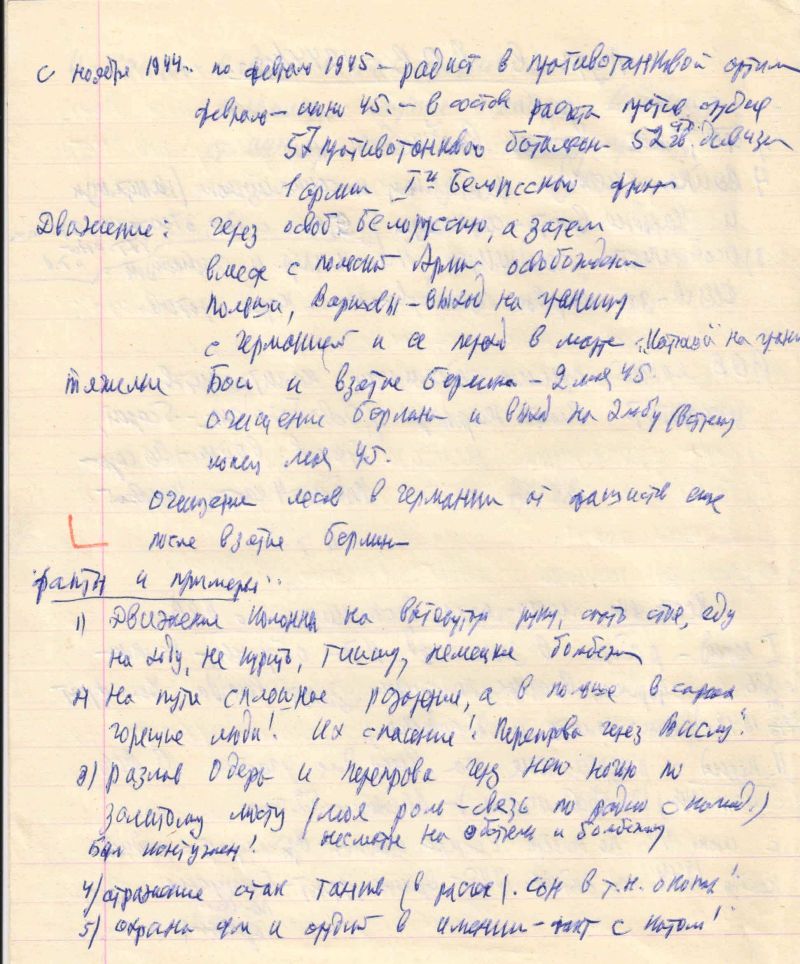 С ноября 1944 г. по февраль 1945 – радист в противотанковой артил
февраль – июнь 45. – в составе расчета против. орудие
57 противотанковой батальон 52 стр. дивизии
1 армии I го Белорусский фронт
Движение: через освоб. Белоруссию, а затем
вместе с польской Армией освобождение
Польши, Варшавы – выход на границу
с Германией и ее переход в марте
тяжелые бои и взятие Берлина – 2 мая 45.
очищение Берлина и выход на Эльбу (встреча)
конец мая 45.
очищение лесов в Германии от фашистов еще
после взятие Берлина
факты и примеры:
1) Движение колонны на вытянутую руку, спать стоя, еду
на ходу, не курить, тишину, немецкие бомбежки
2) На пути сплошное разорение, а в Польше в сараях
горящие люди! Их спасение! Переправа через Вислу!
3) Разлив Одера и переправа через него ночью по
залитому мосту (моя роль – связь по радио с команд.)
Был контужен! несмотря на обстрелы и бомбежку
4) отражение атак танков (в расчете). Сон в т.н. окопах!
5) охрана и орудий в имении – факт с котом!